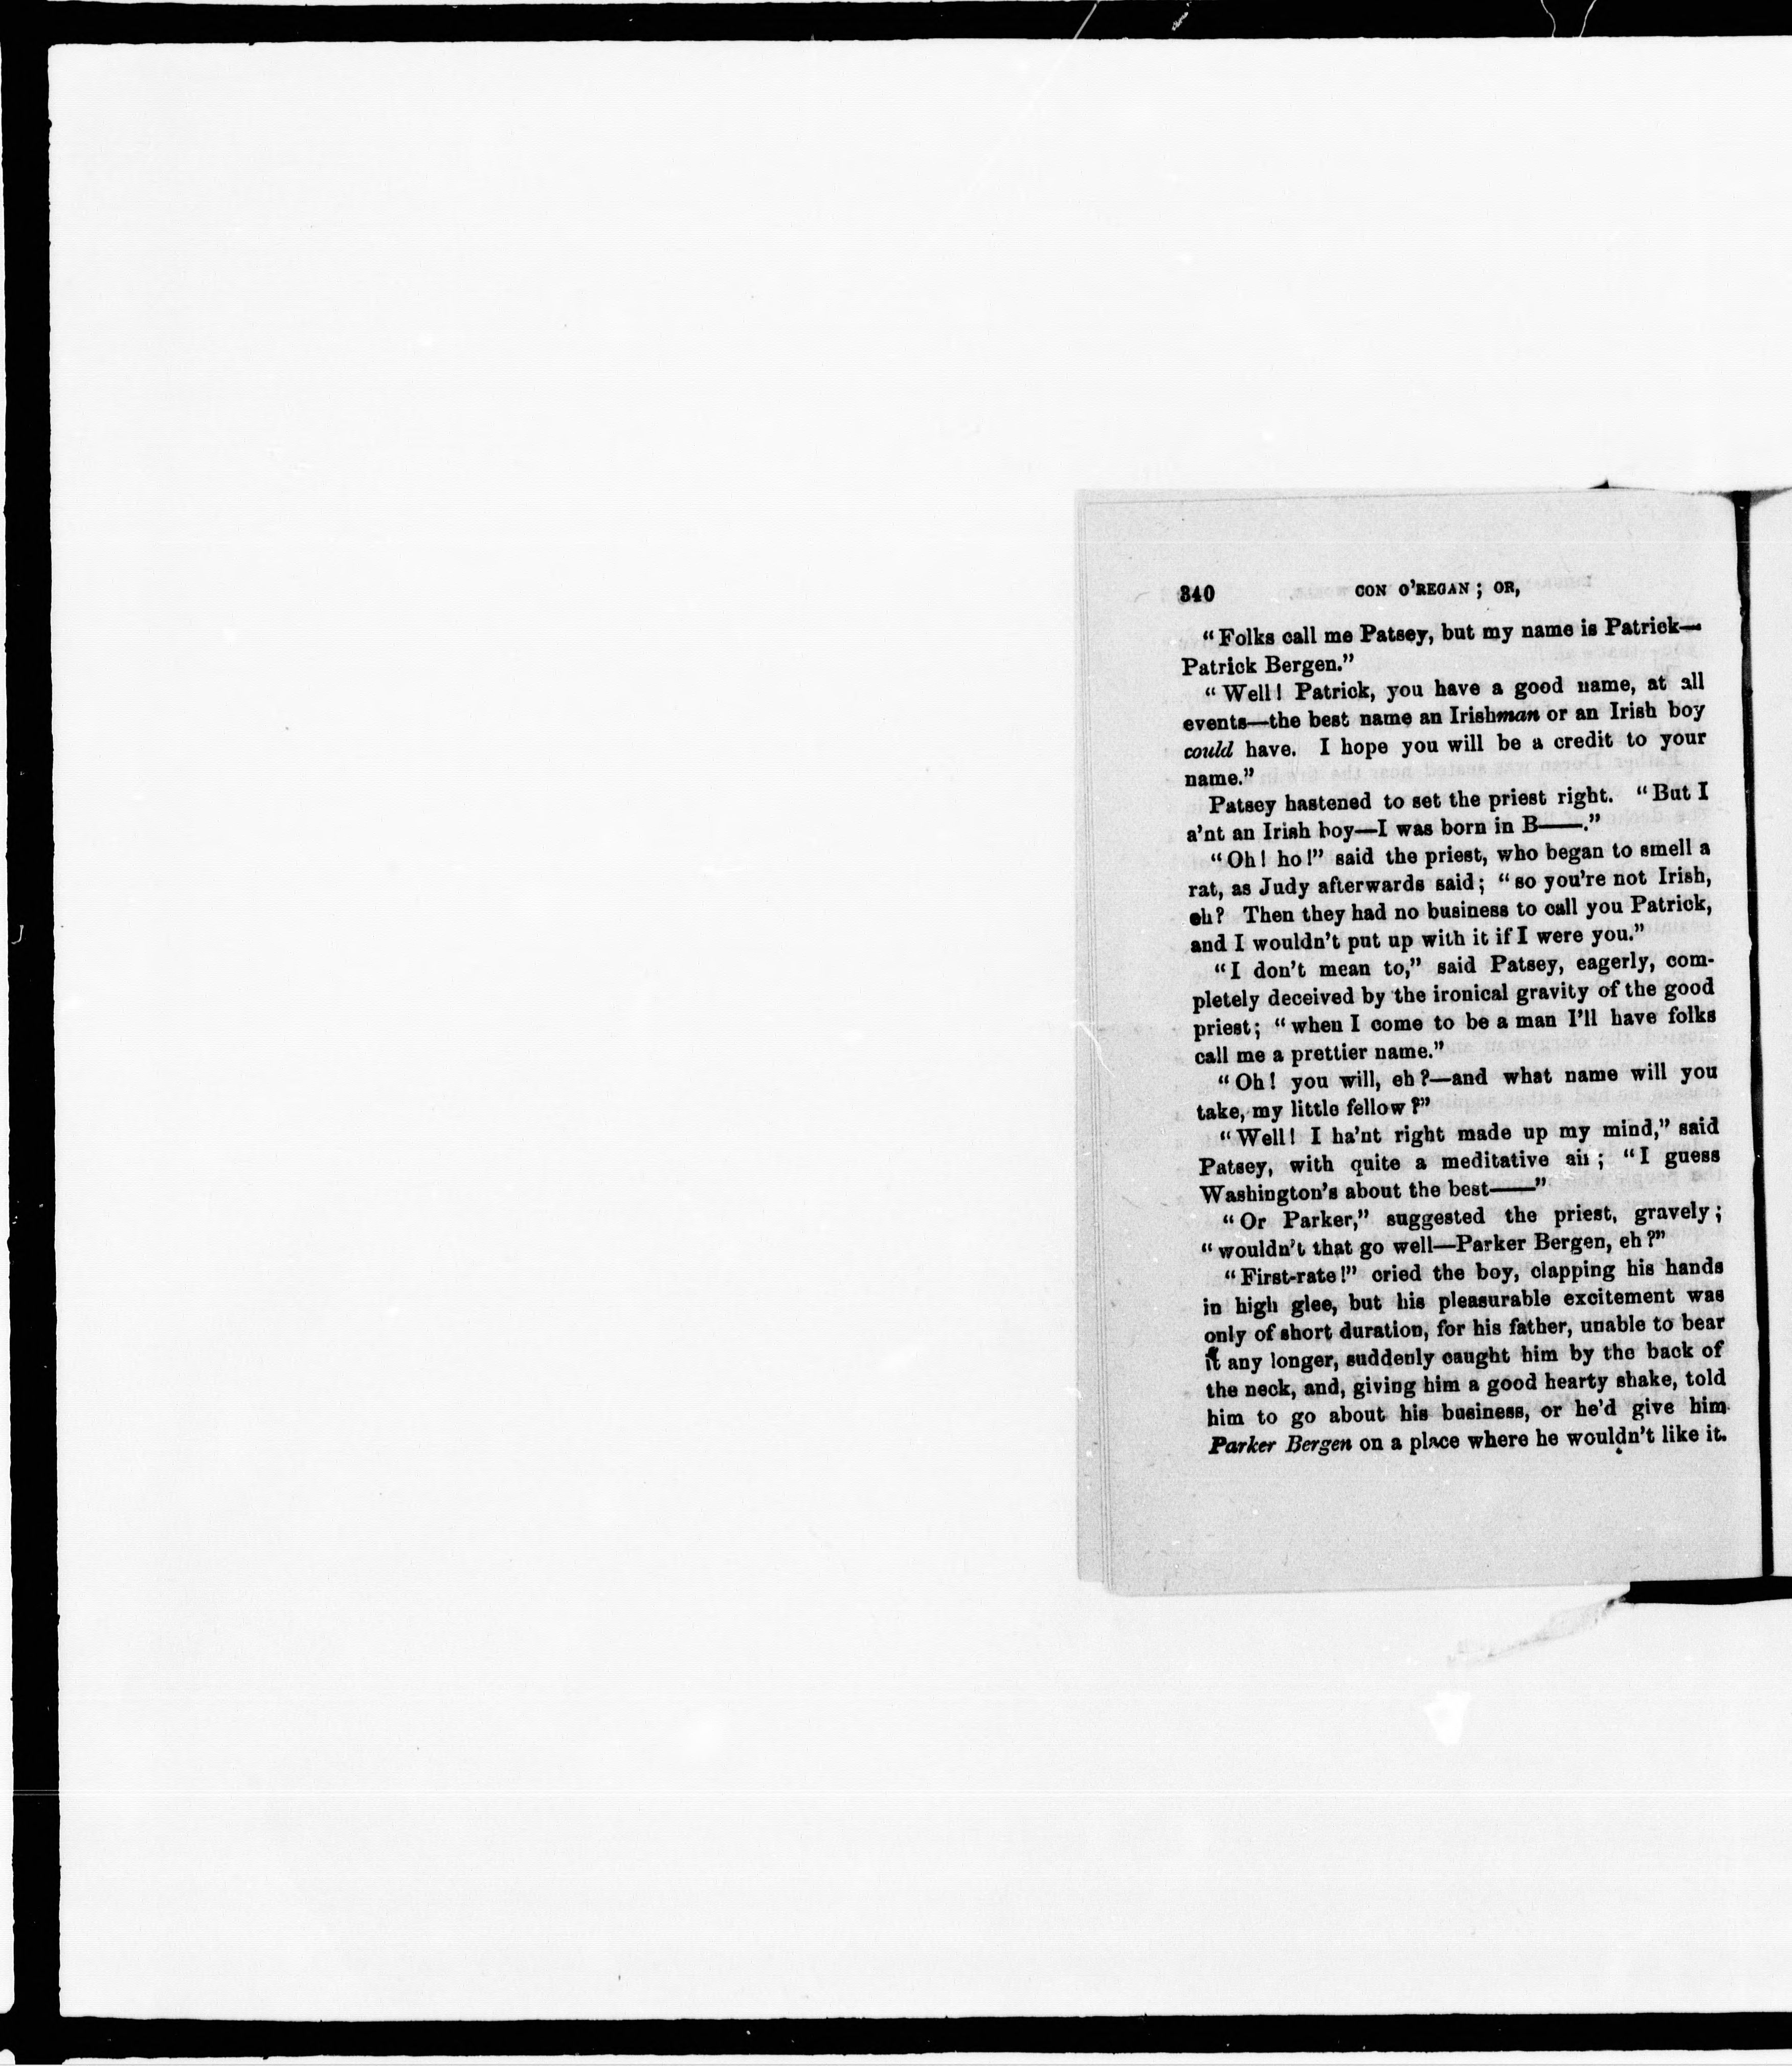 340 CON O'REGAN; OR,
“Folks call me Patsey, but my name is Patrick—
Patrick Bergen.”
“Well! Patrick, you have a good name, at all
events—the best name an Irishman or an Irish boy
could have. I hope you will be a credit to your
name.”
Patsey hastened to set the priest right. “But I
a'nt an Irish boy—I was born in B——.”
“Oh! ho!” said the priest, who began to smell a
rat, as Judy afterwards said; “so you're not Irish,
eh? Then they had no business to call you Patrick,
and I wouldn't put up with it if I were you.”
“I don't mean to,” said Patsey, eagerly, com-
pletely deceived by the ironical gravity of the good
priest; “when I come to be a man I'll have folks
call me a prettier name.”
“Oh! you will, eh?—and what name will you
take, my little fellow?”
“Well! I ha'nt right made up my mind,” said
Patsey, with quite a meditative air; “I guess
Washington's about the best——”
“Or Parker,” suggested the priest, gravely;
“wouldn't that go well—Parker Bergen, eh?”
“First-rate!” cried the boy, clapping his hands
in high glee, but his pleasurable excitement was
only of short duration, for his father, unable to bear
it any longer, suddenly caught him by the back of
the neck, and, giving him a good hearty shake, told
him to go about his business, or he'd give him
Parker Bergen on a place where he wouldn't like it.